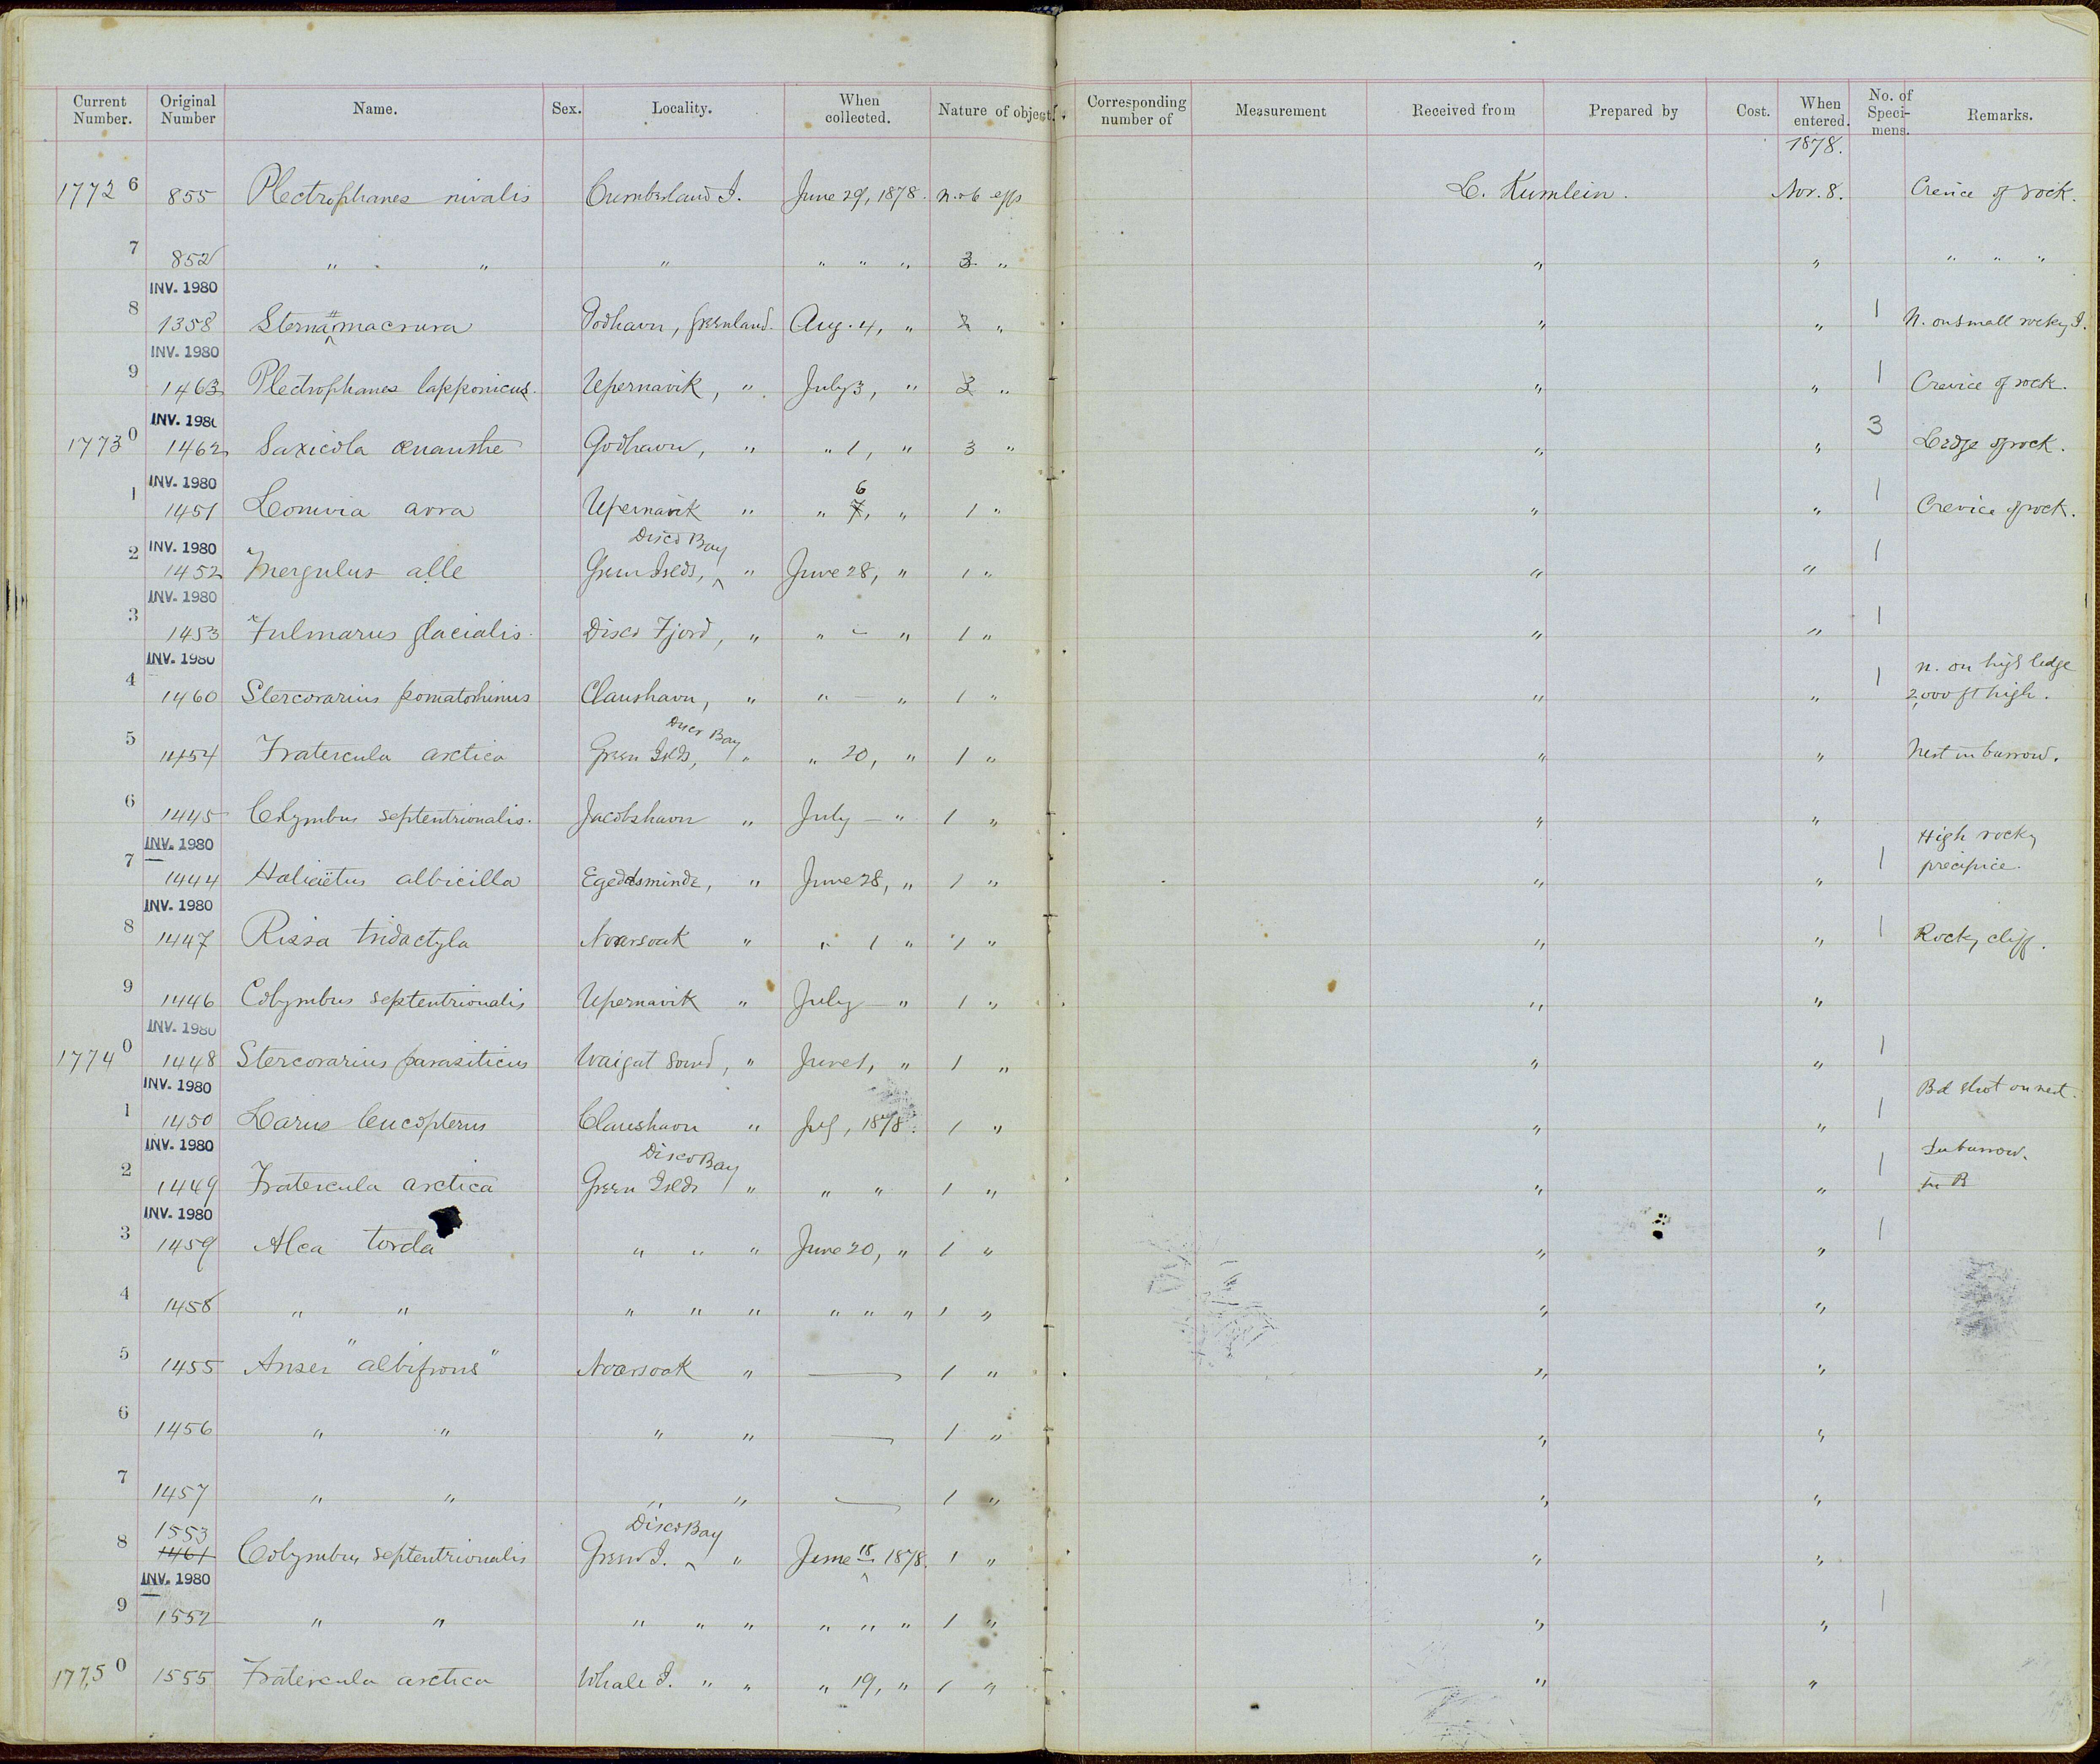 Current Number. Original Number Name. Sex. Locality. When collected. Nature of object. Corresponding number of Measurement Received from Prepared by Cost. When entered. No. of Specimens. Remarks.
1878.
17726 855 Plectrophanes nivalis Cumberland I. June 29, 1878. n. & 6 eggs L. Kumlein. Nov. 8. Crevice of rock.
7 852 " " " " " " 3 " " " " " "
INV. 1980
8 1358 Sterna macrura Godhavn, Greenland. Aug. 4, " 2 " " " 1 N. on small rocky I.
INV. 1980
9 1463 Plectrophanes lapponicus. Upernavik, " July 3, " 3 " " " 1 Crevice of rock.
INV. 1980
17730 1462 Saxicola œnanthe Godhavn, " " 1, " 3 " " " 3 Ledge of rock.
INV. 1980
1 1451 Lomvia arra Upernavik " " 7, 6 " 1 " " " 1 Crevice of rock.
INV. 1980 Disco Bay
2 1452 Mergulus alle Green Islds, " June 28, " 1 " " " 1
INV. 1980
3 1453 Fulmarus glacialis. Disco Fjord, " " – " 1 " " " 1
INV. 1980
4 1460 Stercorarius pomatorhinus Claushavn, " " — " 1 " " " 1 n. on high ledge
2,000 ft high.
Disco Bay
5 1454 Fratercula arctica Green Islds, " " 20, " 1 " " " Nest in burrow.
6 1445 Colymbus septentrionalis. Jacobshavn " July – " 1 " " "
INV. 1980
7 1444 Haliaëtus albicilla Egedesminde, " June 28, " 1 " " " 1 High rocky
precipice.
INV. 1980
8 1447 Rissa tridactyla Noursoak " " 1 " 1 " " " 1 Rocky cliff.
9 1446 Colymbus septentrionalis Upernavik " July — " 1 " " "
INV. 1980
17740 1448 Stercorarius parasiticus Waigat Sound, " June 1, " 1 " " " 1
INV. 1980
1 1450 Larus leucopterus Claushavn " July, 1878. 1 " " " 1 Bd shot on nest.
INV. 1980 Disco Bay
2 1449 Fratercula arctica Green Islds " " " 1 " " " 1 In burrow.
in B
INV. 1980
3 1459 Alca torda " " " June 20, " 1 " " " 1
4 1458 " " " " " " " " 1 " " "
5 1455 Anser "albifrons" Noursoak " — 1 " " "
6 1456 " " " " — 1 " " "
7 1457 " " " " — 1 " " "
1553 Disco Bay
8 1461 Colymbus septentrionalis Green I. " June 18 1878. 1 " " "
INV. 1980
9 1552 " " " " " " " " 1 " " " 1
17750 1555 Fratercula arctica Whale I. " " " 19, " 1 " " "